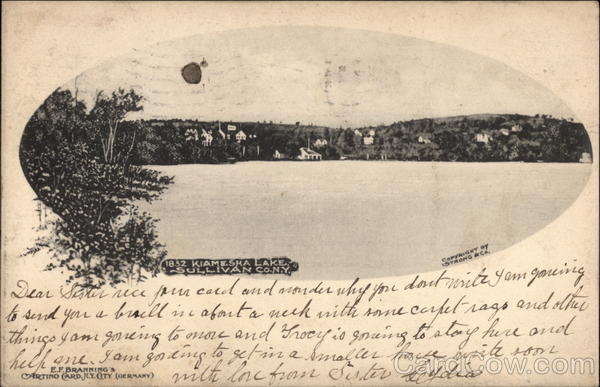 1832. KIAMESHA LAKE,
SULLIVAN CO. N.Y.
COPYRIGHT BY
STRONG & CO.
Dear Sister rece your card and wonder why you dont write I am goneing
to send you a brell in about a week with some carpet rags and other
things I am goneing to move and Tracy is goneing to stay here and
help me. I am goneing to get in a smaller house quite soon
with love from Sister
E.F. BRANNING'S
ARTINO CARD, N.Y. CITY (GERMANY)
CardCow.com